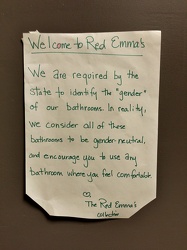 Welcome to Red Emma's
We are required by the
state to identify the "gender"
of our bathrooms. In reality,
we consider all of these
bathrooms to be gender-neutral,
and encourage you to use any
bathroom where you feel comfortable.
The Red Emma's
collective